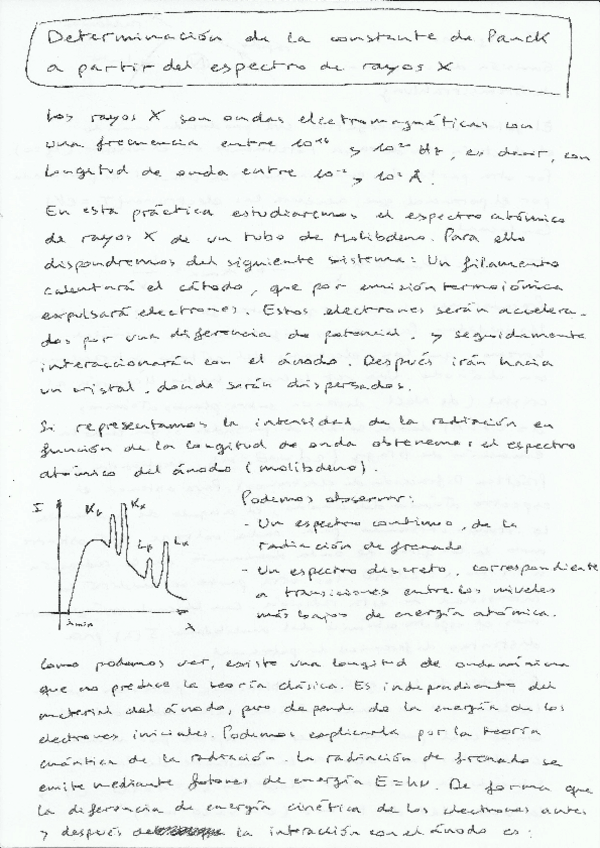 Determinación de la constante de Panck
a partir del espectro de rayos X
Los rayos X son ondas electromagnéticas con
una frecuencia entre 10¹⁶ y 10²⁰ Hz, es decir, con
longitud de onda entre 10⁻² y 10² Å.
En esta práctica estudiaremos el espectro atómico
de rayos X de un tubo de Molibdeno. Para ello
dispondremos del siguiente sistema: Un filamento
calentará el cátodo, que por emisión termoiónica
expulsará electrones. Estos electrones serán accelera-
dos por una diferencia de potencial, y seguidamente
interaccionarán con el ánodo. Después irán hacia
un cristal, donde serán dispersados.
Si representamos la intensidad de la radiación en
función de la longitud de onda obtenemos el espectro
atómico del ánodo (molibdeno).
I
Kβ
Kα
Lβ
Lα
λmin
λ
Podemos observar:
- Un espectro continuo, de la
radiación de frenado
- Un espectro discreto, correspondiente
a transiciones entre los niveles
más bajos de energía atómica.
Como podemos ver, existe una longitud de onda mínima
que no predice la teoría clásica. Es independiente del
material del ánodo, pero depende de la energía de los
electrones iniciales. Podemos explicarla por la teoría
cuántica de la radiación. La radiación de frenado se
emite mediante fotones de energía E=hν. De forma que
la diferencia de energía cinética de los electrones antes
y después de la interacción con el ánodo es: